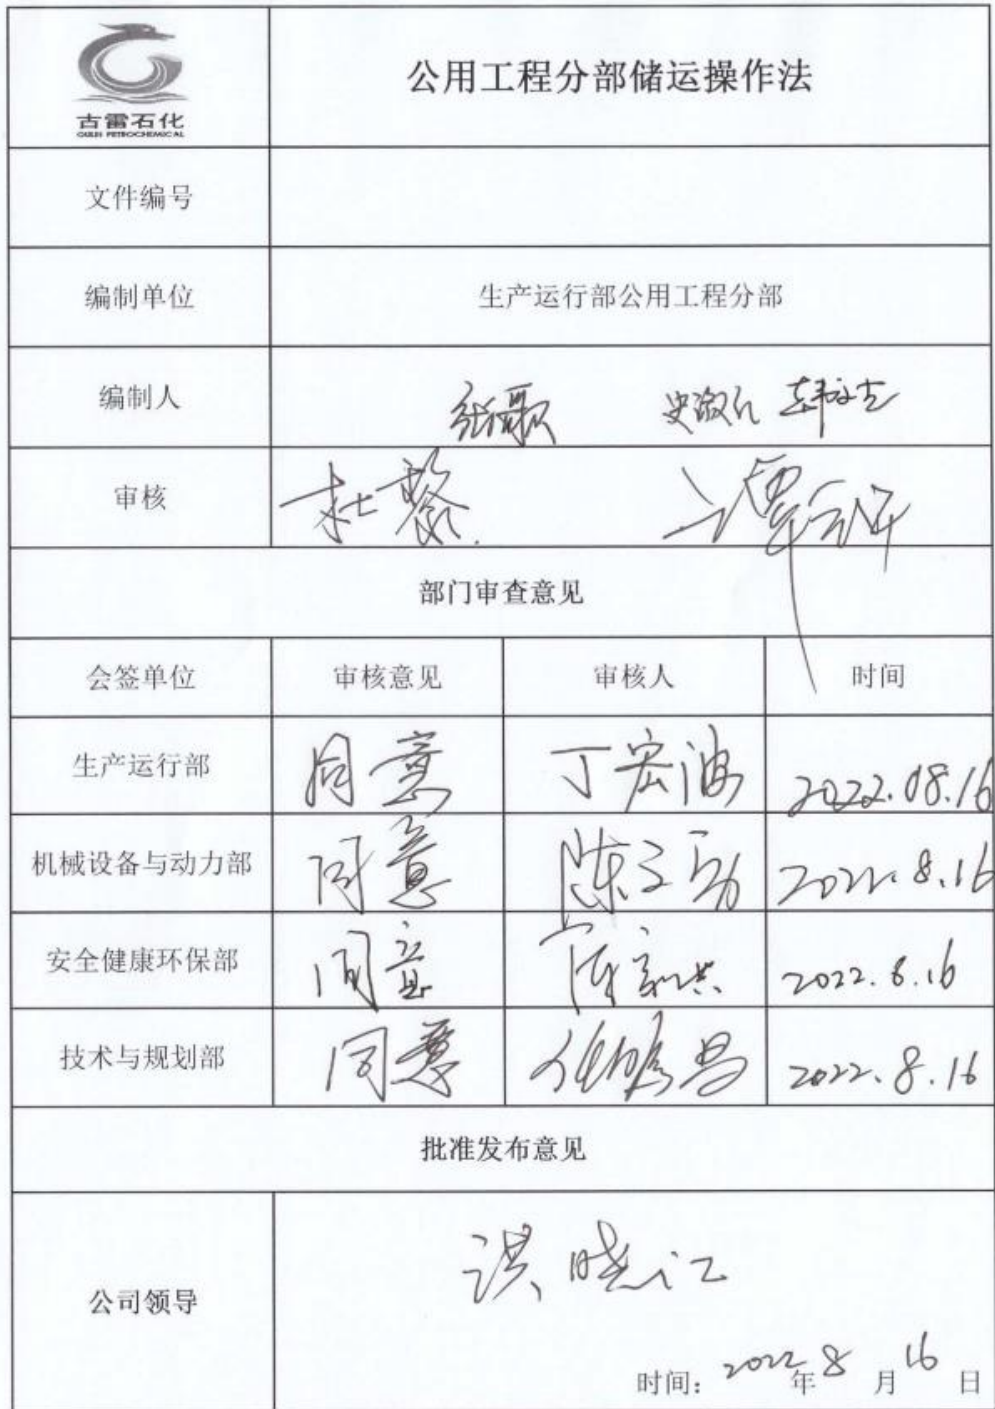 古雷石化
GULEI PETROCHEMICAL
公用工程分部储运操作法
文件编号
编制单位 生产运行部公用工程分部
编制人 张歌 史淑仁
审核 杜黎
部门审查意见
会签单位 审核意见 审核人 时间
生产运行部 同意 丁宏波 2022.08.16
机械设备与动力部 同意 2022.8.16
安全健康环保部 同意 2022.8.16
技术与规划部 同意 2022.8.16
批准发布意见
公司领导 洪晓江
时间：2022年8月16日